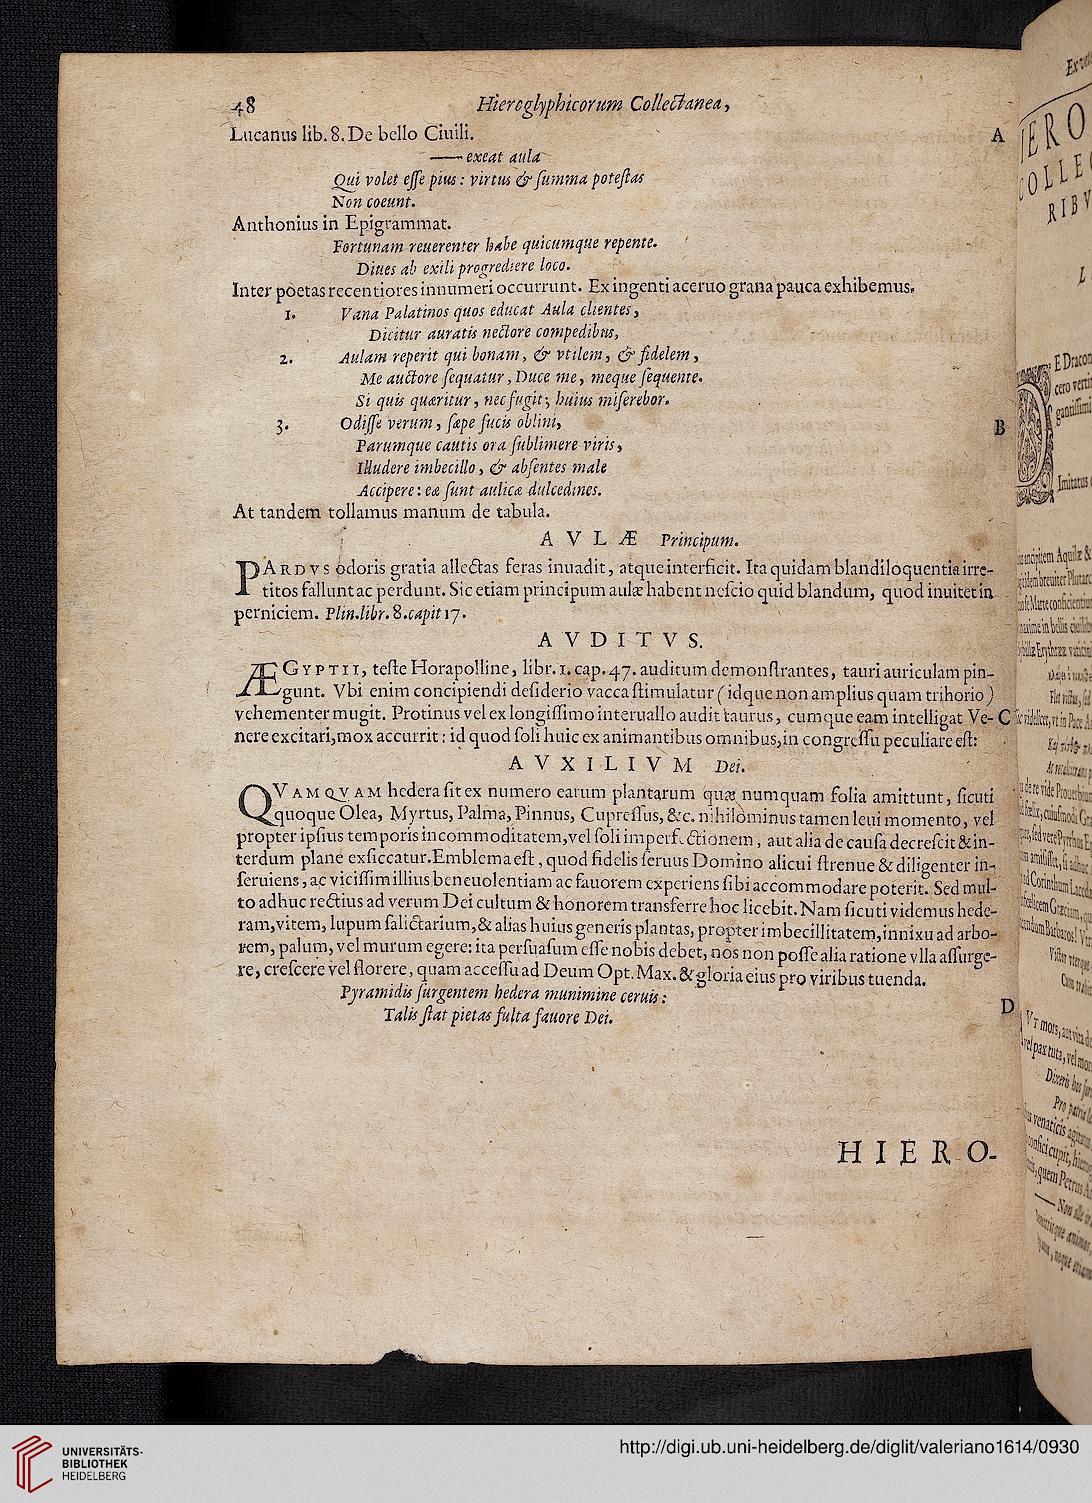 48 Hieroglyphicorum Collectanea,
Lucanus lib. 8. De bello Ciuili.
A
—— exeat aula
Qui volet esse pius: virtus & summa potestas
Non coeunt.
Anthonius in Epigrammat.
Fortunam reuerenter habe quicumque repente.
Diues ab exili progrediere loco.
Inter poëtas recentiores innumeri occurrunt. Ex ingenti aceruo grana pauca exhibemus.
1. Vana Palatinos quos educat Aula clientes,
Dicitur auratis nectore compedibus,
2. Aulam reperit qui bonam, & vtilem, & fidelem,
Me auctore sequatur, Duce me, meque sequente.
Si quis quæritur, nec fugit; huius miserebor.
3. Odisse verum, sæpe fucis oblini,
B
Parumque cautis ora sublimere viris,
Illudere imbecillo, & absentes male
Accipere: eæ sunt aulicæ dulcedines.
At tandem tollamus manum de tabula.
AVLÆ Principum.
PARDVS odoris gratia allectas feras inuadit, atque interficit. Ita quidam blandiloquentia irre-
titos fallunt ac perdunt. Sic etiam principum aulæ habent nescio quid blandum, quod inuitet in
perniciem. Plin. libr. 8. capit 17.
AVDITVS.
ÆGYPTII, teste Horapolline, libr. 1. cap. 47. auditum demonstrantes, tauri auriculam pin-
gunt. Vbi enim concipiendi desiderio vacca stimulatur (idque non amplius quam trihorio)
vehementer mugit. Protinus vel ex longissimo interuallo audit taurus, cumque eam intelligat Ve-
C
nere excitari, mox accurrit: id quod soli huic ex animantibus omnibus, in congressu peculiare est:
AVXILIVM Dei.
QVAMQVAM hedera sit ex numero earum plantarum quæ numquam folia amittunt, sicuti
quoque Olea, Myrtus, Palma, Pinnus, Cupressus, &c. nihilominus tamen leui momento, vel
propter ipsius temporis incommoditatem, vel soli imperfectionem, aut alia de causa decrescit & in-
terdum plane exsiccatur. Emblema est, quod fidelis seruus Domino alicui strenue & diligenter in-
seruiens, ac vicissim illius beneuolentiam ac fauorem experiens sibi accommodare poterit. Sed mul-
to adhuc rectius ad verum Dei cultum & honorem transferre hoc licebit. Nam sicuti videmus hede-
ram, vitem, lupum salictarium, & alias huius generis plantas, propter imbecillitatem, innixu ad arbo-
rem, palum, vel murum egere: ita persuasum esse nobis debet, nos non posse alia ratione vlla assurge-
re, crescere vel florere, quam accessu ad Deum Opt. Max. & gloria eius pro viribus tuenda.
Pyramidis surgentem hedera munimine cernis:
D
Talis stat pietas fulta fauore Dei.
HIERO-
UNIVERSITÄTS-
BIBLIOTHEK
HEIDELBERG
http://digi.ub.uni-heidelberg.de/diglit/valeriano1614/0930